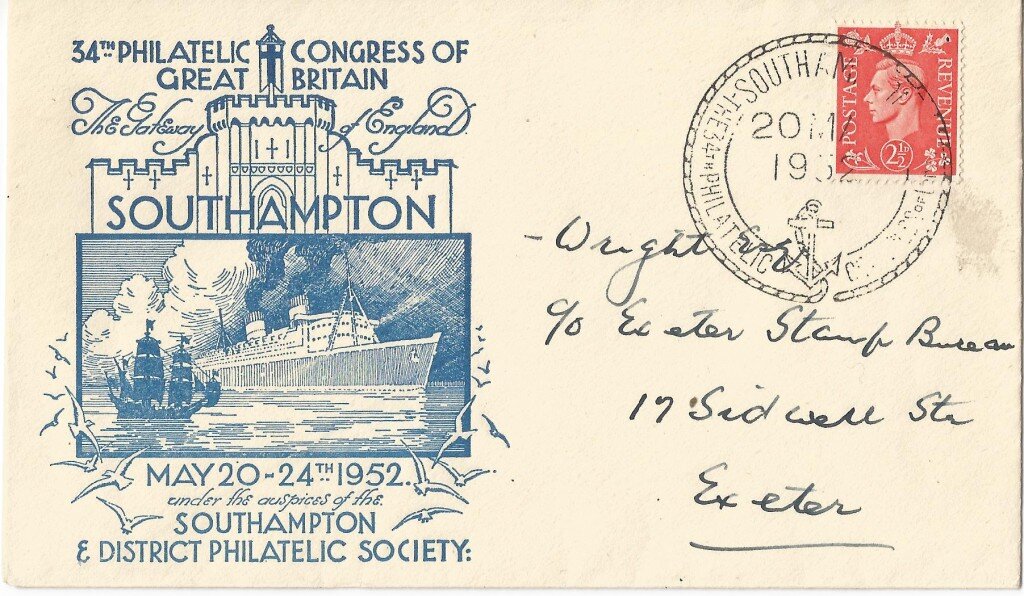 34TH PHILATELIC CONGRESS OF
GREAT BRITAIN
The Gateway of England.
SOUTHAMPTON
MAY 20-24TH 1952.
under the auspices of the
SOUTHAMPTON
& DISTRICT PHILATELIC SOCIETY:
POSTAGE REVENUE
2½D
THE 34TH PHILATELIC
20 M
1952
-Wright
c/o Exeter Stamp Bureau
17 Sidwell Str
Exeter